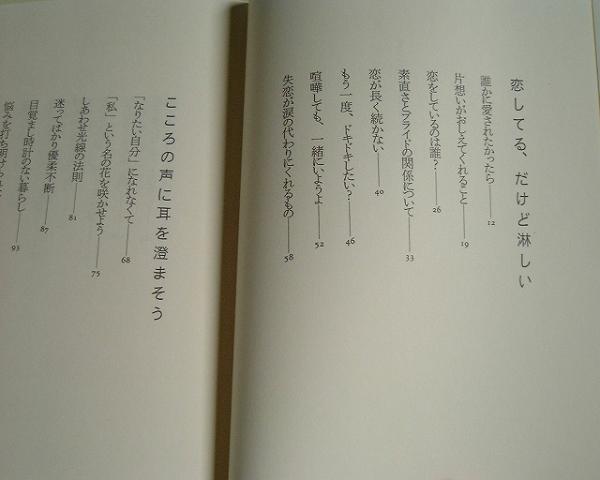 恋してる、だけど淋しい
誰かに愛されたかったら——12
片想いがおしえてくれること——19
恋をしているのは誰?——26
素直さとプライドの関係について——33
恋が長く続かない——40
もう一度、ドキドキしたい?——46
喧嘩しても、一緒にいようよ——52
失恋が涙の代わりにくれるもの——58
こころの声に耳を澄まそう
「なりたい自分」になれなくて——68
「私」という名の花を咲かせよう——75
しあわせ光線の法則——81
迷ってばかり優柔不断——87
目覚まし時計のない暮らし——93
悩みを打ち明けられ